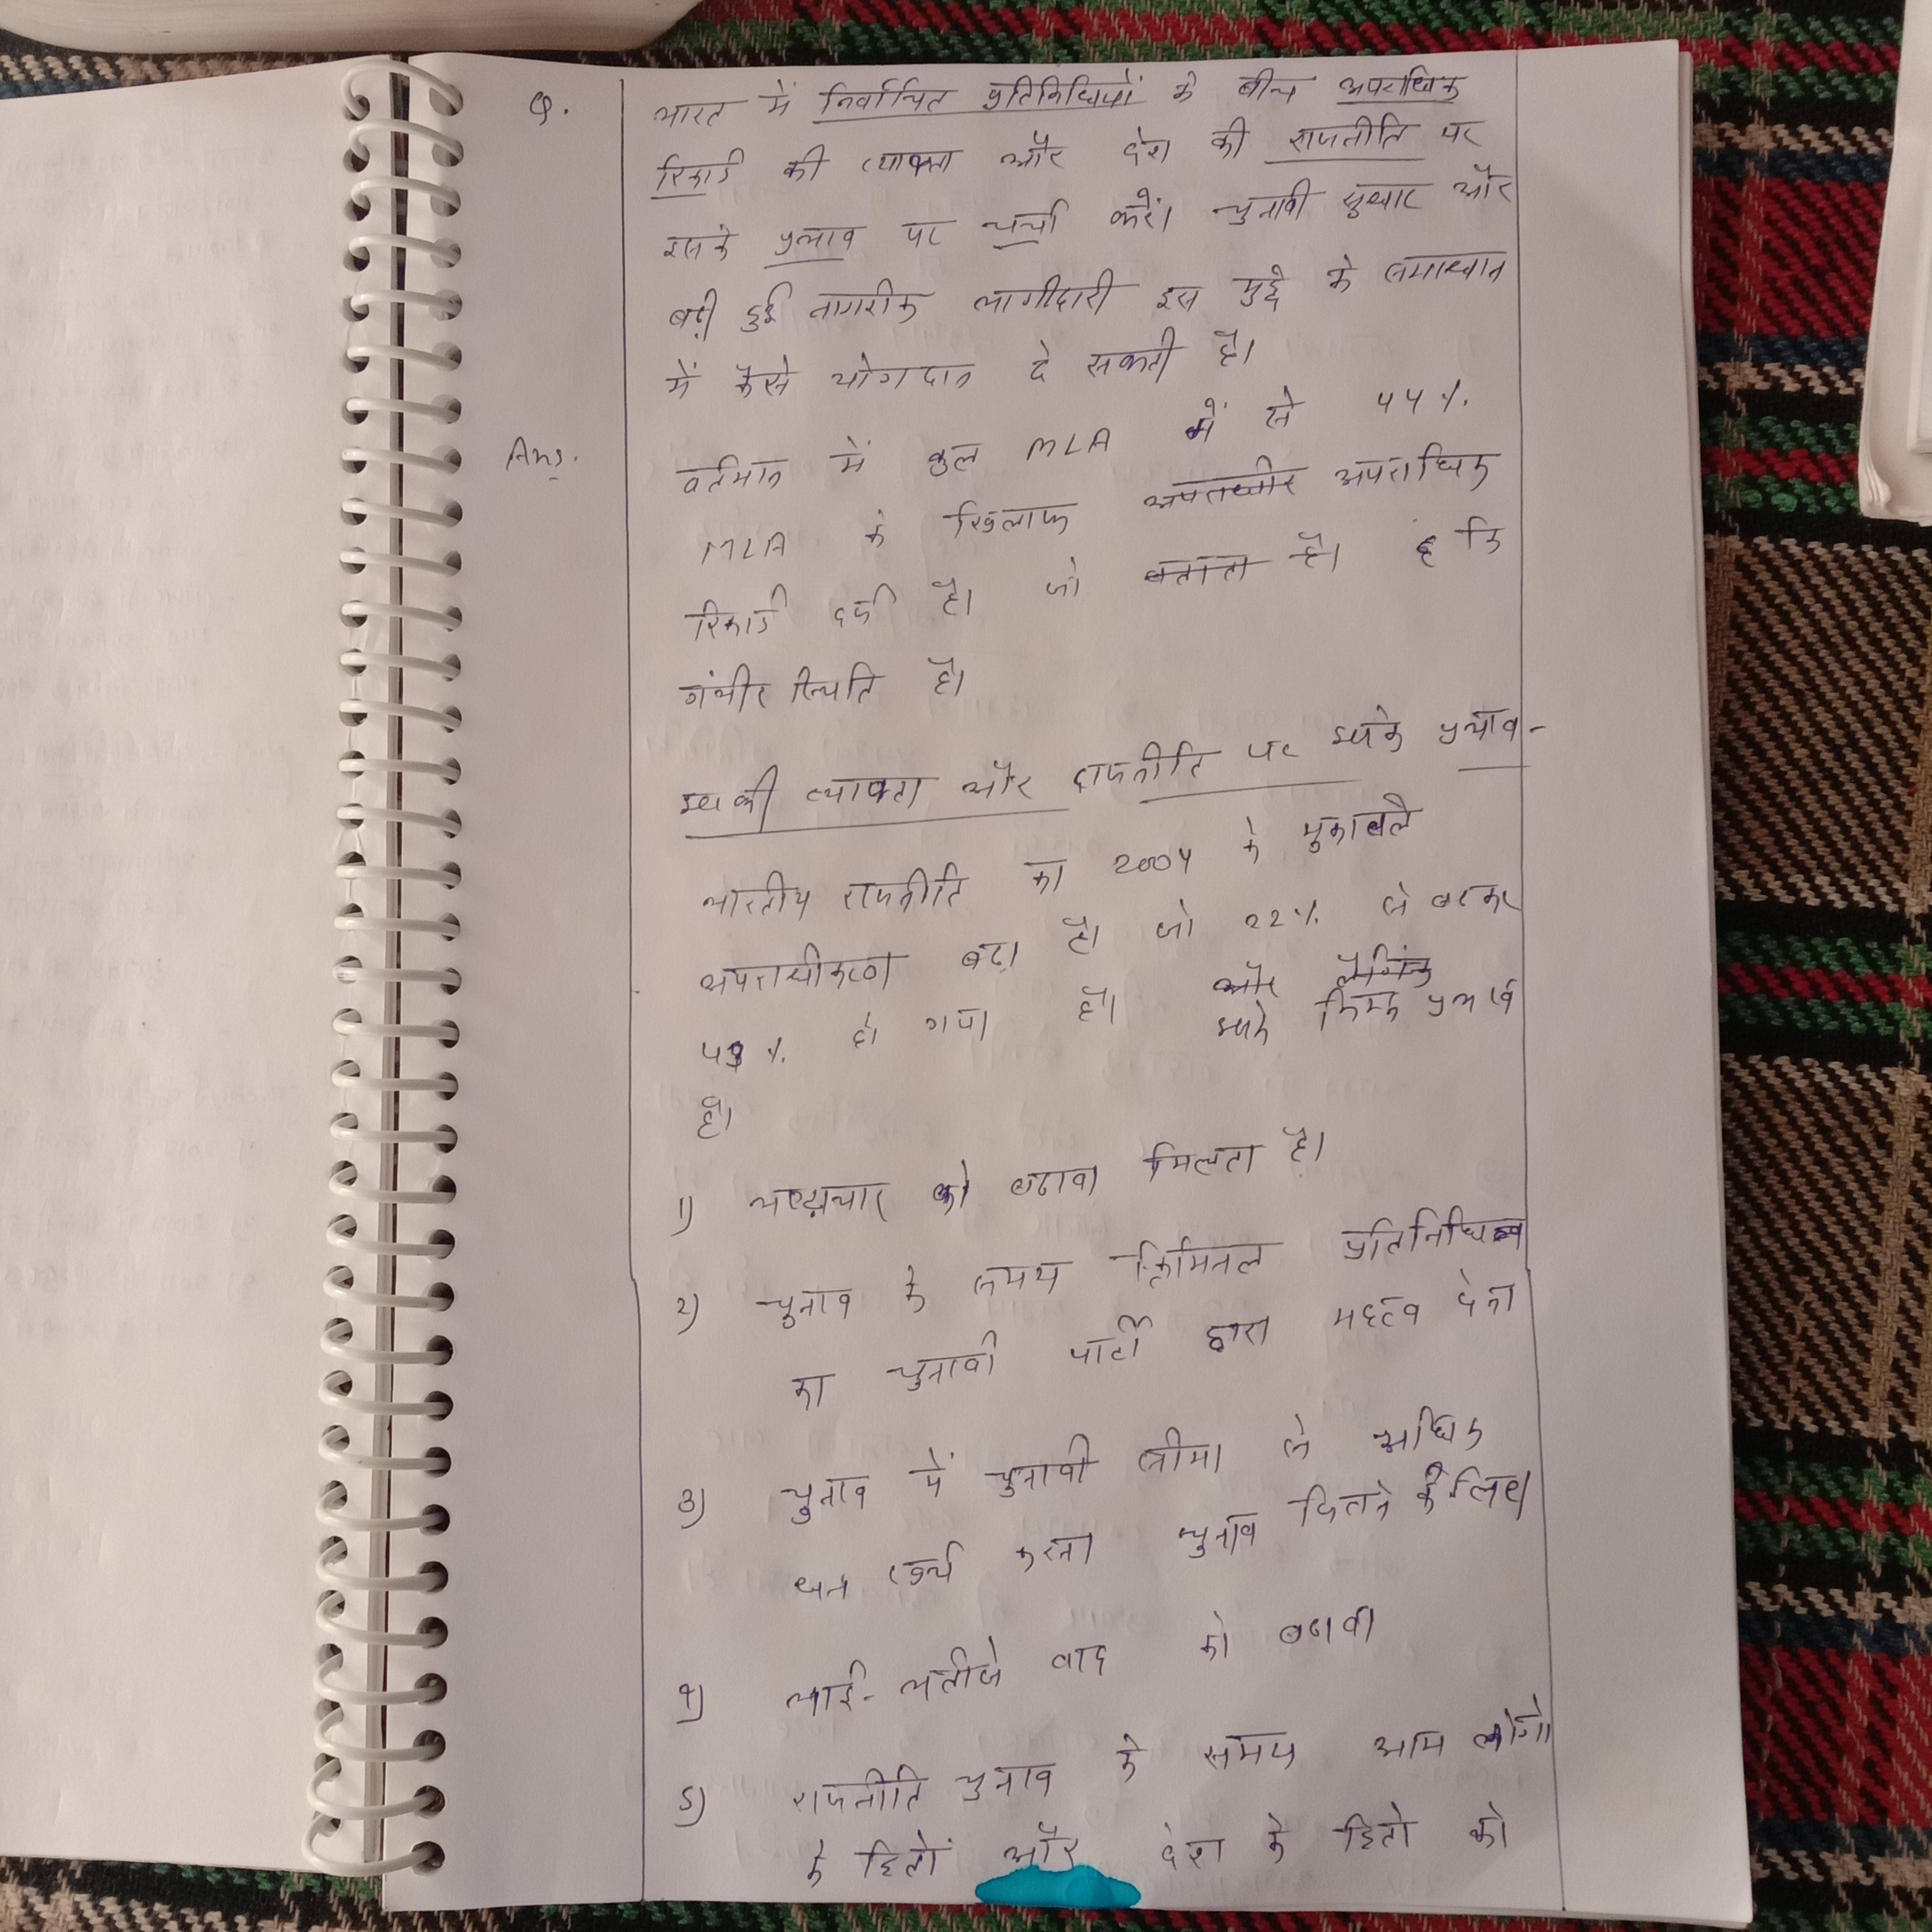 Q. भारत में निर्वाचित प्रतिनिधियों के बीच अपराधिक
रिकार्ड की व्यापकता और देश की राजनीति पर
इसके प्रभाव पर चर्चा करें। चुनावी सुधार और
बढ़ी हुई नागरीक भागीदारी इस मुद्दे के समाधान
में कैसे योगदान दे सकती है।
Ans. वर्तमान में कुल MLA में से 44%
MLA के खिलाफ अपराधिक
रिकार्ड दर्ज है। जो बताता है। कि
गंभीर स्थिति है।
इसकी व्यापकता और राजनीति पर इसके प्रभाव-
भारतीय राजनीति का 2004 के मुकाबले
अपराधीकरण बढ़ा है। जो 22% से बढकर
43% हो गया है। और लैंगिक
इसके निम्न प्रभाव
है।
1) भष्ट्राचार को बढावा मिलता है।
2) चुनाव के समय क्रिमिनल प्रतिनिधित्व
का चुनावी पार्टी द्वारा महत्व देना
3) चुनाव में चुनावी सीमा से अधिक
धन खर्च करना चुनाव जितने के लिए
4) भाई-भतीजे वाद को बढावा
5) राजनीति चुनाव के समय आम लोगो
के हितों और देश के हितो को